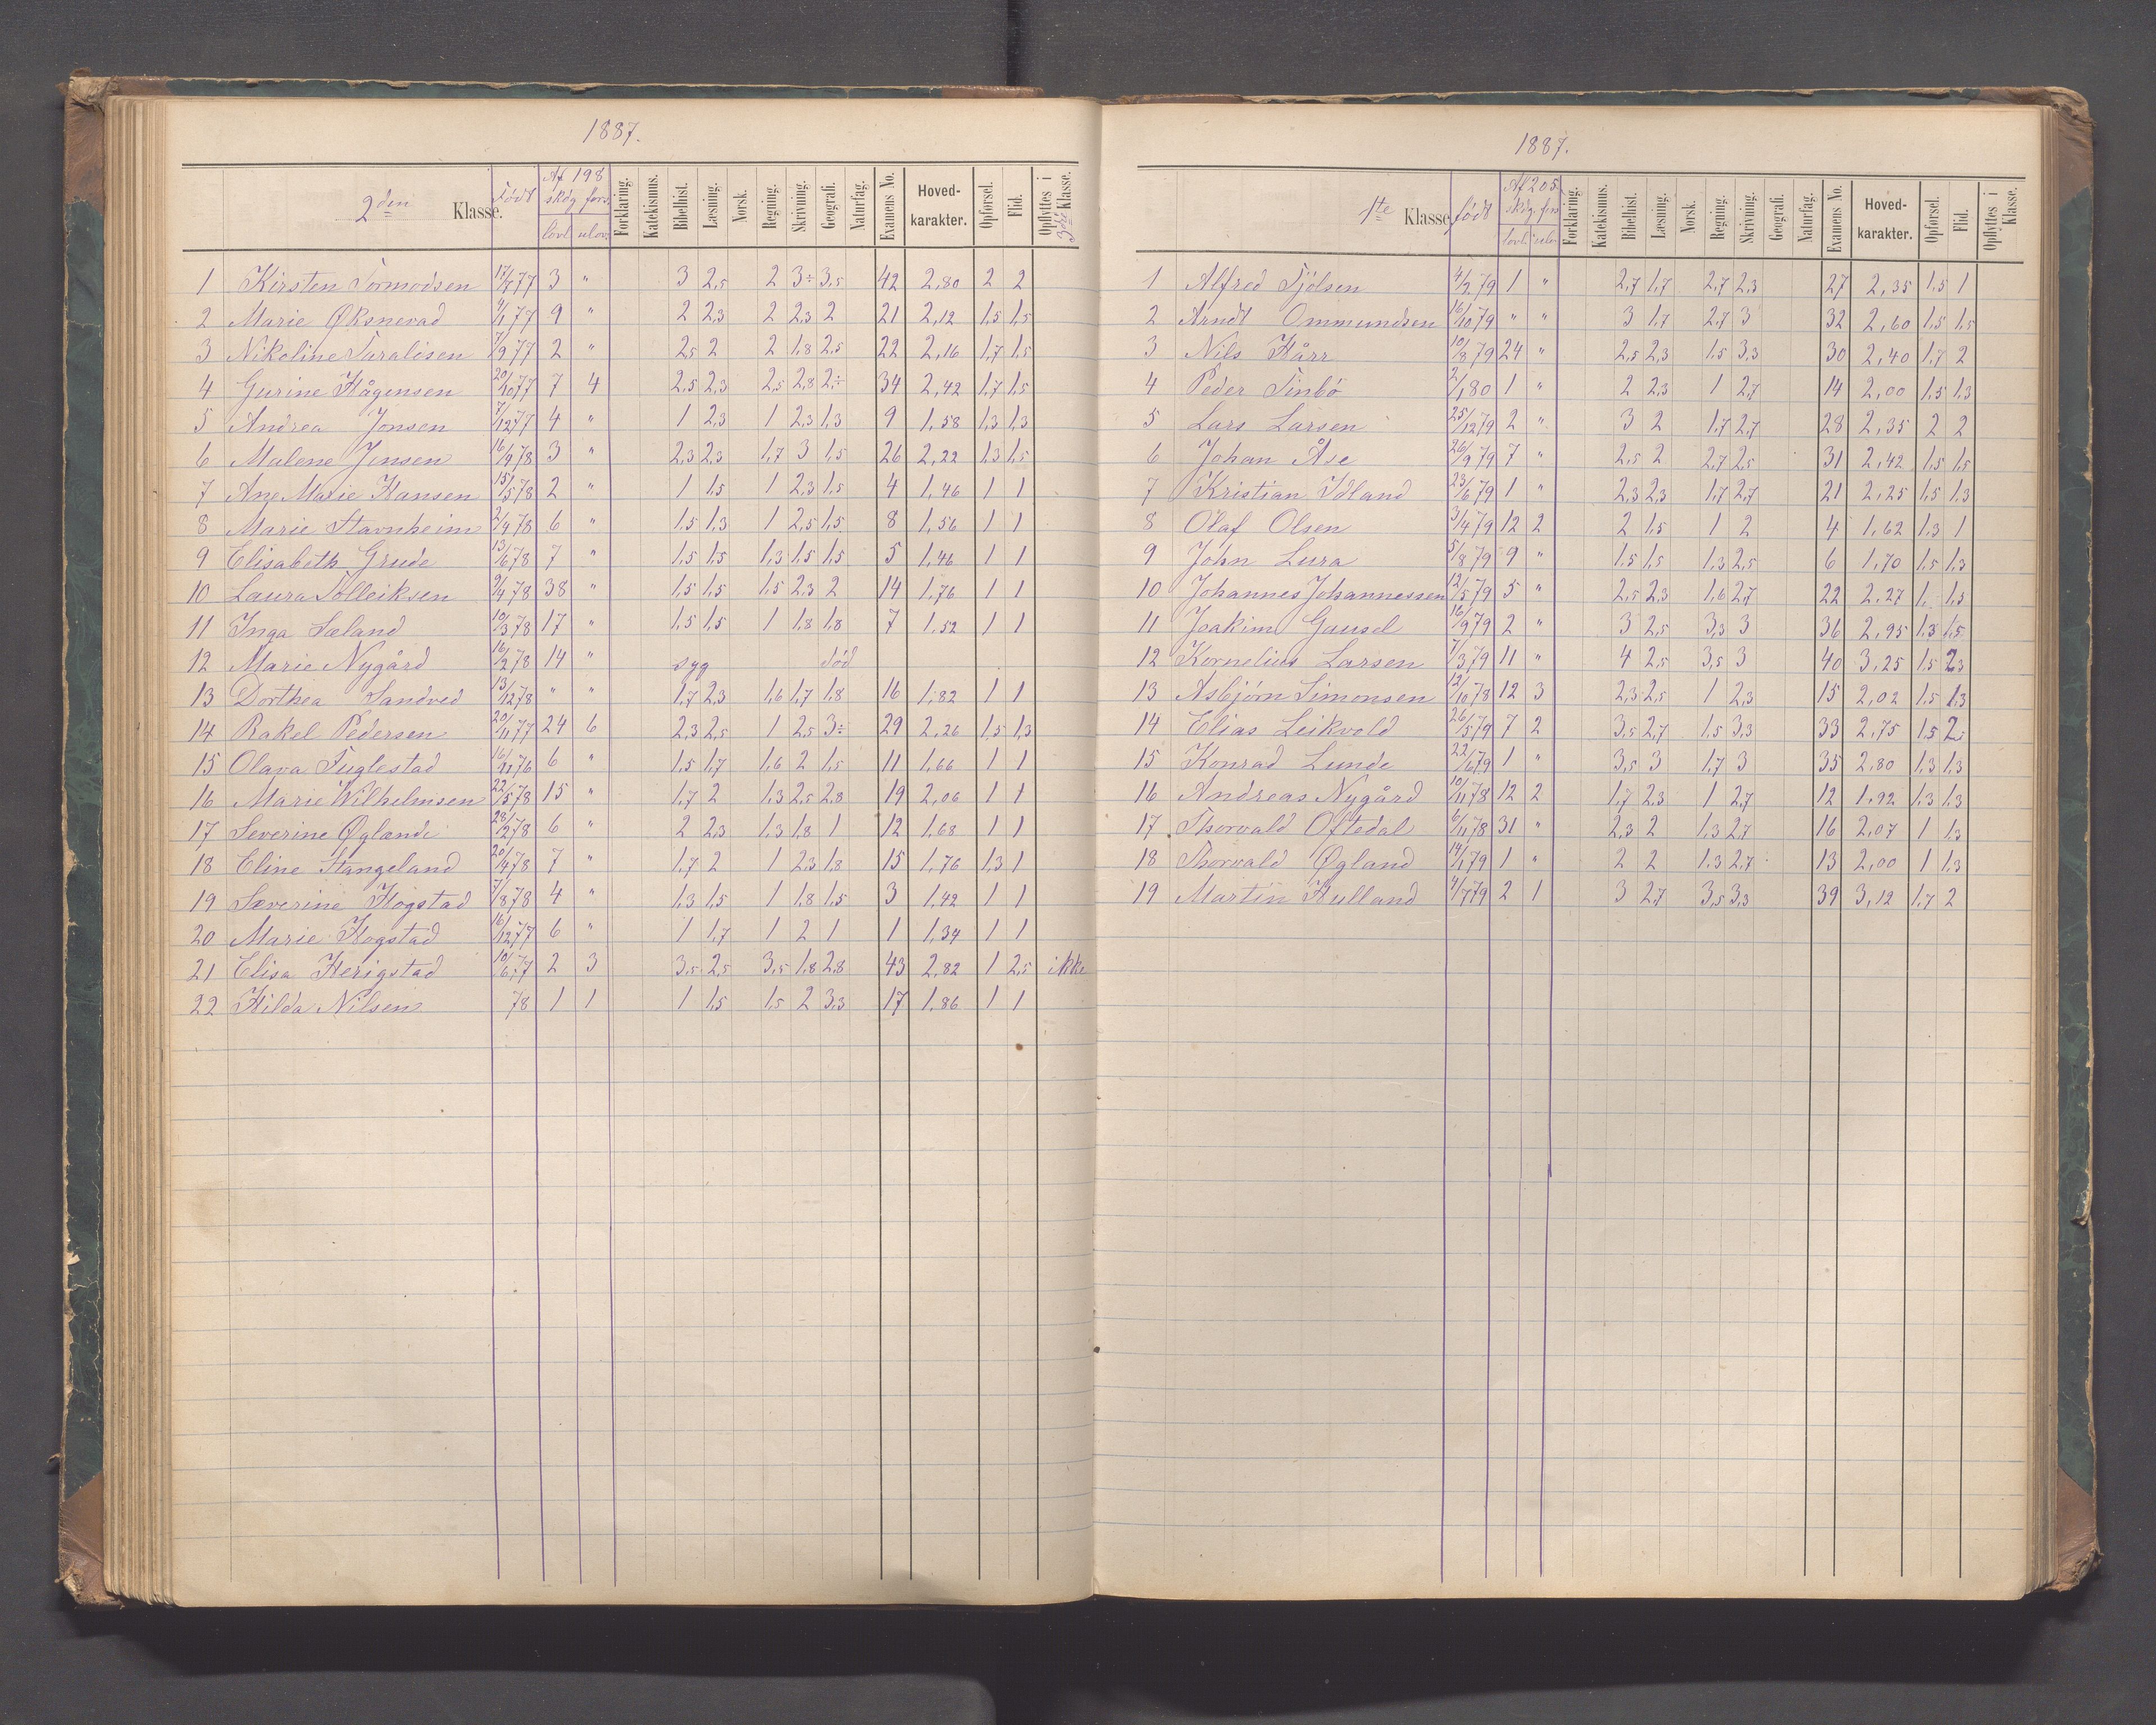 1887.
2den Klasse. Født Af 198 skdg fors. lovl. ulov. Forklaring. Katekismus. Bibelhist. Læsning. Norsk. Regning. Skrivning. Geografi. Naturfag. Examens No. Hoved-karakter. Opførsel. Flid. Opflyttes i 3die Klasse.
1 Kirsten Tormodsen 17/7 77 3 " 3 2,5 2 3÷ 3,5 42 2,80 2 2
2 Marie Øksnevad 4/1 77 9 " 2 2,3 2 2,3 2 21 2,12 1,5 1,5
3 Nikoline Taraldsen 7/9 77 2 " 2,5 2 2 1,8 2,5 22 2,16 1,7 1,5
4 Gurine Hågensen 20/10 77 7 4 2,5 2,3 2,5 2,8 2÷ 34 2,42 1,7 1,5
5 Andrea Jonsen 7/12 77 4 " 1 2,3 1 2,3 1,3 9 1,58 1,3 1,3
6 Malene Jensen 16/9 78 3 " 2,3 2,3 1,7 3 1,5 26 2,22 1,3 1,5
7 Ane Marie Hansen 15/5 78 2 " 1 1,5 1 2,3 1,5 4 1,46 1 1
8 Marie Stavnheim 2/4 78 6 " 1,5 1,3 1 2,5 1,5 8 1,56 1 1
9 Elisabeth Grude 13/6 78 7 " 1,5 1,5 1,3 1,5 1,5 5 1,46 1 1
10 Laura Solleiksen 9/4 78 38 " 1,5 1,5 1,5 2,3 2 14 1,76 1 1
11 Inga Sæland 10/3 78 17 " 1,5 1,5 1 1,8 1,8 7 1,52 1 1
12 Marie Nygård 16/2 78 14 " syg død
13 Dorthea Sandved 13/12 78 " " 1,7 2,3 1,6 1,7 1,8 16 1,82 1 1
14 Rakel Pedersen 20/11 77 24 6 2,3 2,5 1 2,5 3÷ 29 2,26 1,5 1,3
15 Olava Fuglestad 16/11 76 6 " 1,5 1,7 1,6 2 1,5 11 1,66 1 1
16 Marie Wilhelmsen 22/5 78 15 " 1,7 2 1,3 2,5 2,8 19 2,06 1 1
17 Severine Øglænd 28/2 78 6 " 2 2,3 1,3 1,8 1 12 1,68 1 1
18 Eline Stangeland 20/4 78 7 " 1,7 2 1 2,3 1,8 15 1,76 1,3 1
19 Severine Hogstad 7/8 78 4 " 1,3 1,5 1 1,8 1,5 3 1,42 1 1
20 Marie Hogstad 16/12 77 6 " 1 1,7 1 2 1 1 1,34 1 1
21 Elisa Herigstad 10/6 77 2 3 3,5 2,5 3,5 1,8 2,8 43 2,82 1 2,5 ikke
22 Hilda Nilsen 78 1 1 1 1,5 1,5 2 3,3 17 1,86 1 1
1887.
1ste Klasse. født Af 205 skdg. fors lovl. ulov Forklaring. Katekismus. Bibelhist. Læsning. Norsk. Regning. Skrivning. Geografi. Naturfag. Examens No. Hoved-karakter. Opførsel. Flid. Opflyttes i Klasse.
1 Alfred Tjølsen 4/2 79 1 " 2,7 1,7 2,7 2,3 27 2,35 1,5 1
2 Arndt Ommundsen 16/10 79 " " 3 1,7 2,7 3 32 2,60 1,5 1,5
3 Nils Hårr 10/8 79 24 " 2,5 2,3 1,5 3,3 30 2,40 1,7 2
4 Peder Tinbø 2/1 80 1 " 2 2,3 1 2,7 14 2,00 1,5 1,3
5 Lars Larsen 25/12 79 2 " 3 2 1,7 2,7 28 2,35 2 2
6 Johan Åse 26/9 79 7 " 2,5 2 2,7 2,5 31 2,42 1,5 1,5
7 Kristian Idland 23/6 79 1 " 2,3 2,3 1,7 2,7 21 2,25 1,5 1,3
8 Olaf Olsen 3/4 79 12 2 2 1,5 1 2 4 1,62 1,3 1
9 John Lura 5/8 79 9 " 1,5 1,5 1,3 2,5 6 1,70 1,5 1,3
10 Johannes Johannessen 12/5 79 5 " 2,5 2,3 1,6 2,7 22 2,27 1, 1,5
11 Joakim Gausel 16/9 79 2 " 3 2,5 3,3 3 36 2,95 1,3 1,5
12 Kornelius Larsen 7/3 79 11 " 4 2,5 3,5 3 40 3,25 1,5 2,3
13 Asbjørn Simonsen 12/10 78 12 3 2,3 2,5 1 2,3 15 2,02 1,5 1,3
14 Elias Leikvold 26/5 79 7 2 3,5 2,7 1,5 3,3 33 2,75 1,5 2
15 Konrad Lunde 22/6 79 1 " 3,5 3 1,7 3 35 2,80 1,3 1,3
16 Andreas Nygård 10/11 78 12 2 1,7 2,3 1 2,7 12 1,92 1,3 1,3
17 Thorvald Oftedal 6/11 78 31 " 2,3 2 1,3 2,7 16 2,07 1 1,3
18 Thorvald Øgland 14/1 79 1 " 2 2 1,3 2,7 13 2,00 1 1,3
19 Martin Hulland 4/7 79 2 1 3 2,7 3,5 3,3 39 3,12 1,7 2